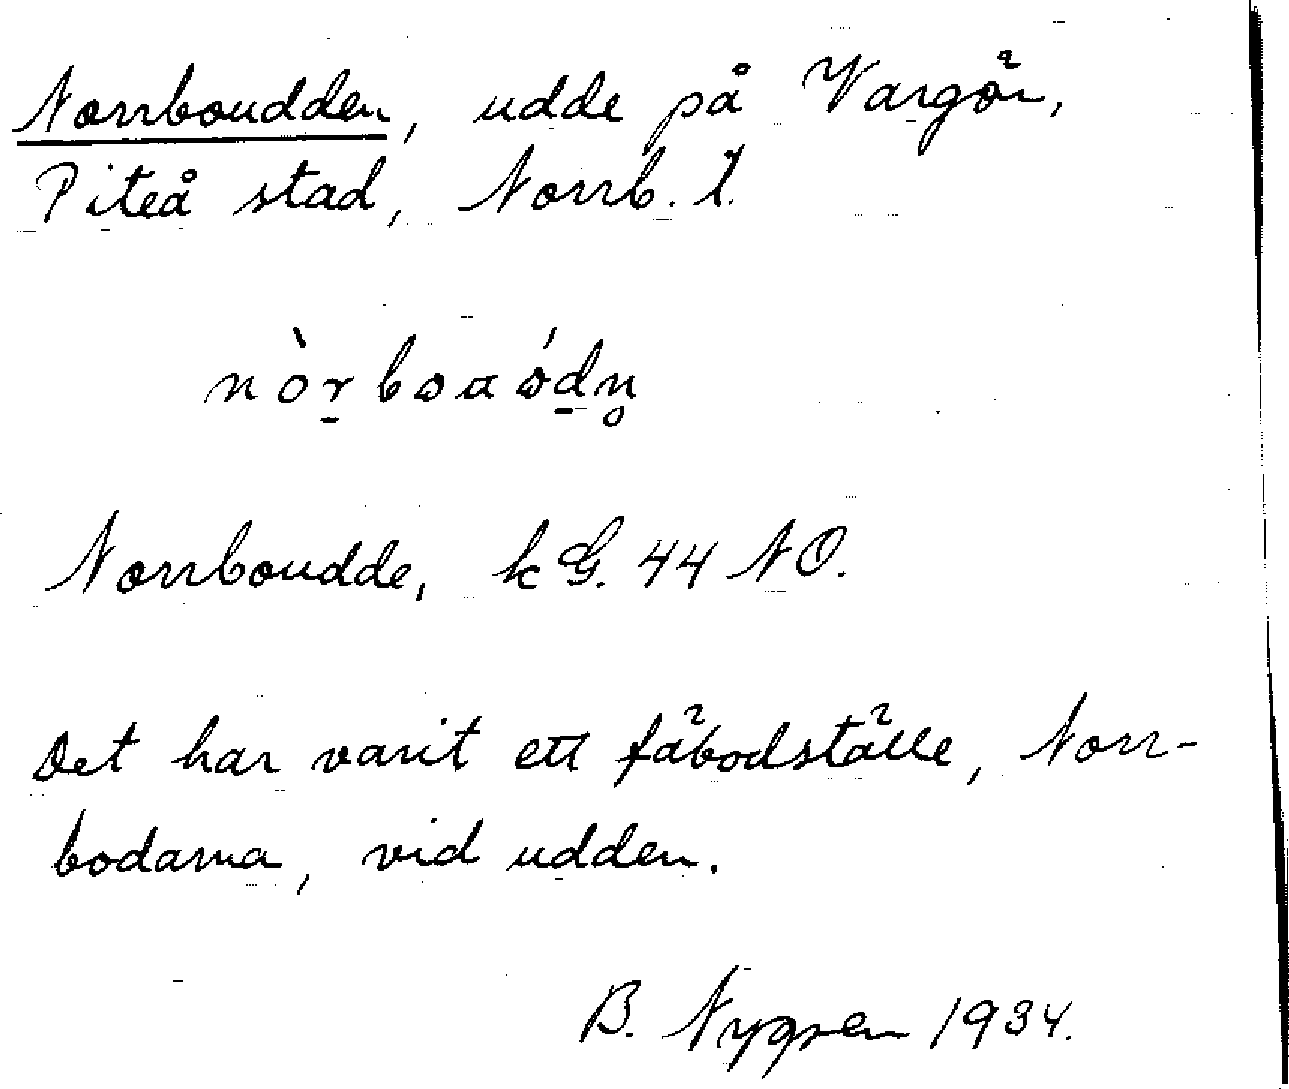 Norrboudden, udde på Vargön,
Piteå stad, Norrb. l.
nòr̠bɷaɷ́d̠n̥
Norrboudde, kG. 44 NO.
Det har varit ett fäbodställe, Norr-
bodarna, vid udden.
B. Nygren 1934.